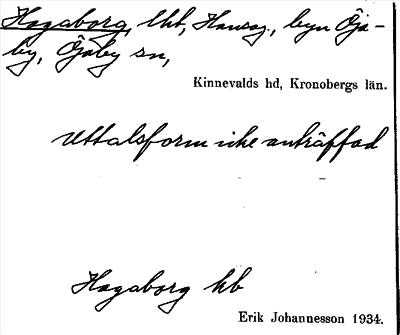 Hagaborg, lht, Hansag., byn Öja-
by, Öjaby sn,
Kinnevalds hd, Kronobergs län.
Uttalsform icke anträffad
Hagaborg hb
Erik Johannesson 1934.